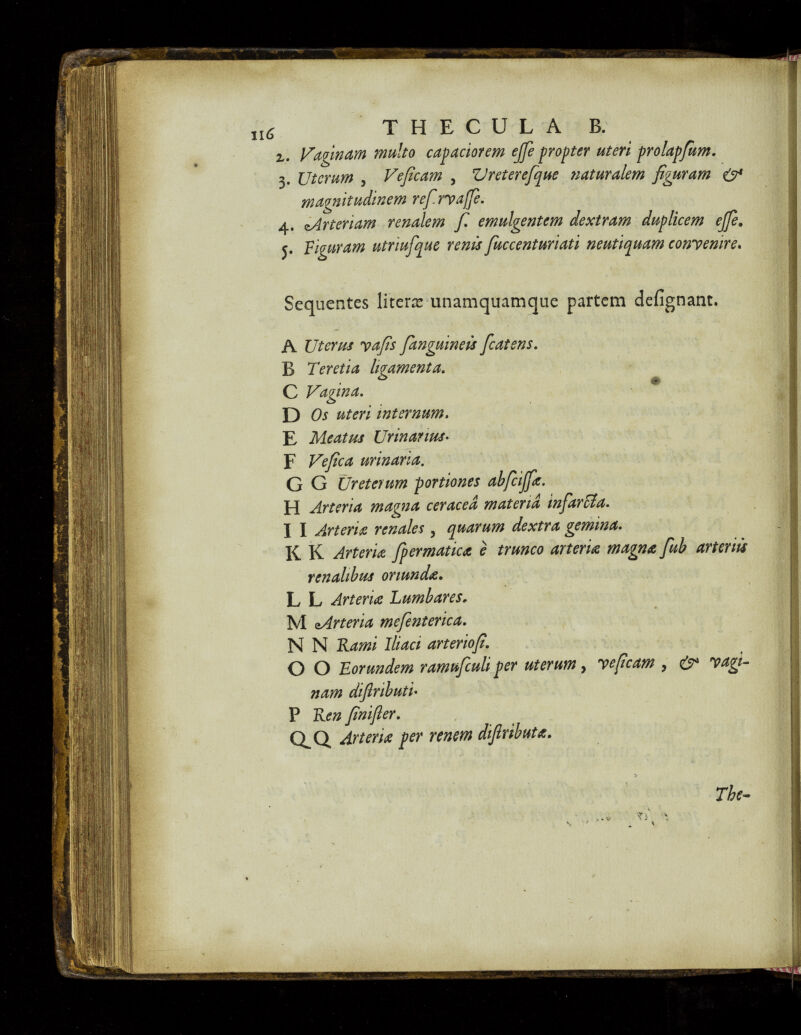 116 THECULA B.
2. Vaginam multo capaciorem eſſe propter uteri prolapſum.
3. Uterum , Veſicam , Uretereſque naturalem figuram &
magnitudinem reſ.rvaſſe.
4. Arteriam renalem ſ. emulgentem dextram duplicem eſſe.
5. Figuram utriuſque renis ſuccenturiati neutiquam convenire.
Sequentes literæ unamquamque partem deſignant.
A Uterus vaſis ſanguineis ſcatens.
B Teretia ligamenta.
C Vagina.
D Os uteri internum.
E Meatus Urinarius.
F Veſica urinaria.
G G Ureterum portiones abſciſſæ.
H Arteria magna ceraceâ materiâ infarcta.
I I Arteriæ renales , quarum dextra gemina.
K K Arteriæ ſpermaticæ è trunco arteriæ magnæ ſub arteriis
renalibus oriundæ.
L L Arteriæ Lumbares.
M Arteria meſenterica.
N N Rami Iliaci arterioſi.
O O Eorundem ramuſculi per uterum , veſicam , & vagi-
nam diſtributi.
P Ren ſiniſter.
Q Q Arteriæ per renem diſtributæ.
The-